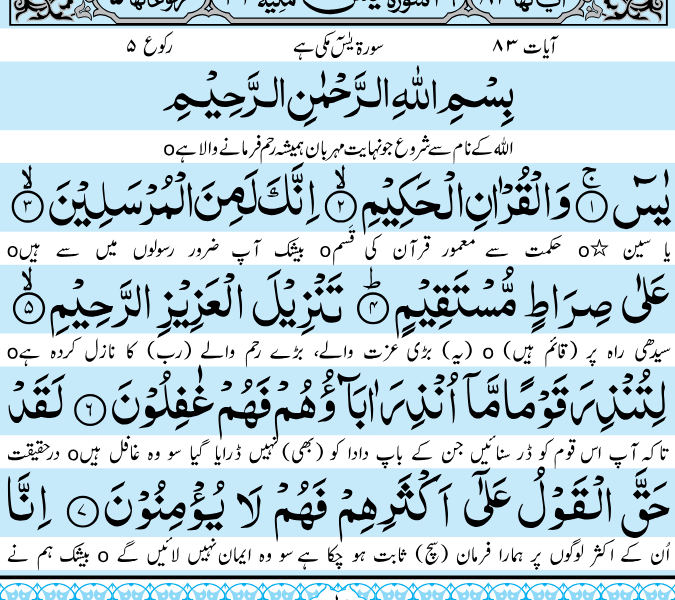 سورۃ یٰسٓ مکیۃ
آیات ۸۳ سورۃ یٰسٓ مکی ہے رکوع ۵
بِسْمِ اللهِ الرَّحْمٰنِ الرَّحِيْمِ
اللہ کے نام سے شروع جو نہایت مہربان ہمیشہ رحم فرمانے والا ہےo
يٰسٓ ۚ﴿۱﴾ وَالْقُرْاٰنِ الْحَكِيْمِ ۙ﴿۲﴾ اِنَّكَ لَمِنَ الْمُرْسَلِيْنَ ۙ﴿۳﴾
یا سین ☆o حکمت سے معمور قرآن کی قَسمo بیشک آپ ضرور رسولوں میں سے ہیںo
عَلٰى صِرَاطٍ مُّسْتَقِيْمٍ ؕ﴿۴﴾ تَنْزِيْلَ الْعَزِيْزِ الرَّحِيْمِ ۙ﴿۵﴾
سیدھی راہ پر (قائم ہیں) o (یہ) بڑی عزت والے، بڑے رحم والے (رب) کا نازل کردہ ہےo
لِتُنْذِرَ قَوْمًا مَّاۤ اُنْذِرَ اٰبَآؤُهُمْ فَهُمْ غٰفِلُوْنَ ﴿۶﴾ لَقَدْ
تاکہ آپ اس قوم کو ڈر سنائیں جن کے باپ دادا کو (بھی) نہیں ڈرایا گیا سو وہ غافل ہیںo درحقیقت
حَقَّ الْقَوْلُ عَلٰۤى اَكْثَرِهِمْ فَهُمْ لَا يُؤْمِنُوْنَ ﴿۷﴾ اِنَّا
اُن کے اکثر لوگوں پر ہمارا فرمان (سچ) ثابت ہو چکا ہے سو وہ ایمان نہیں لائیں گے o بیشک ہم نے